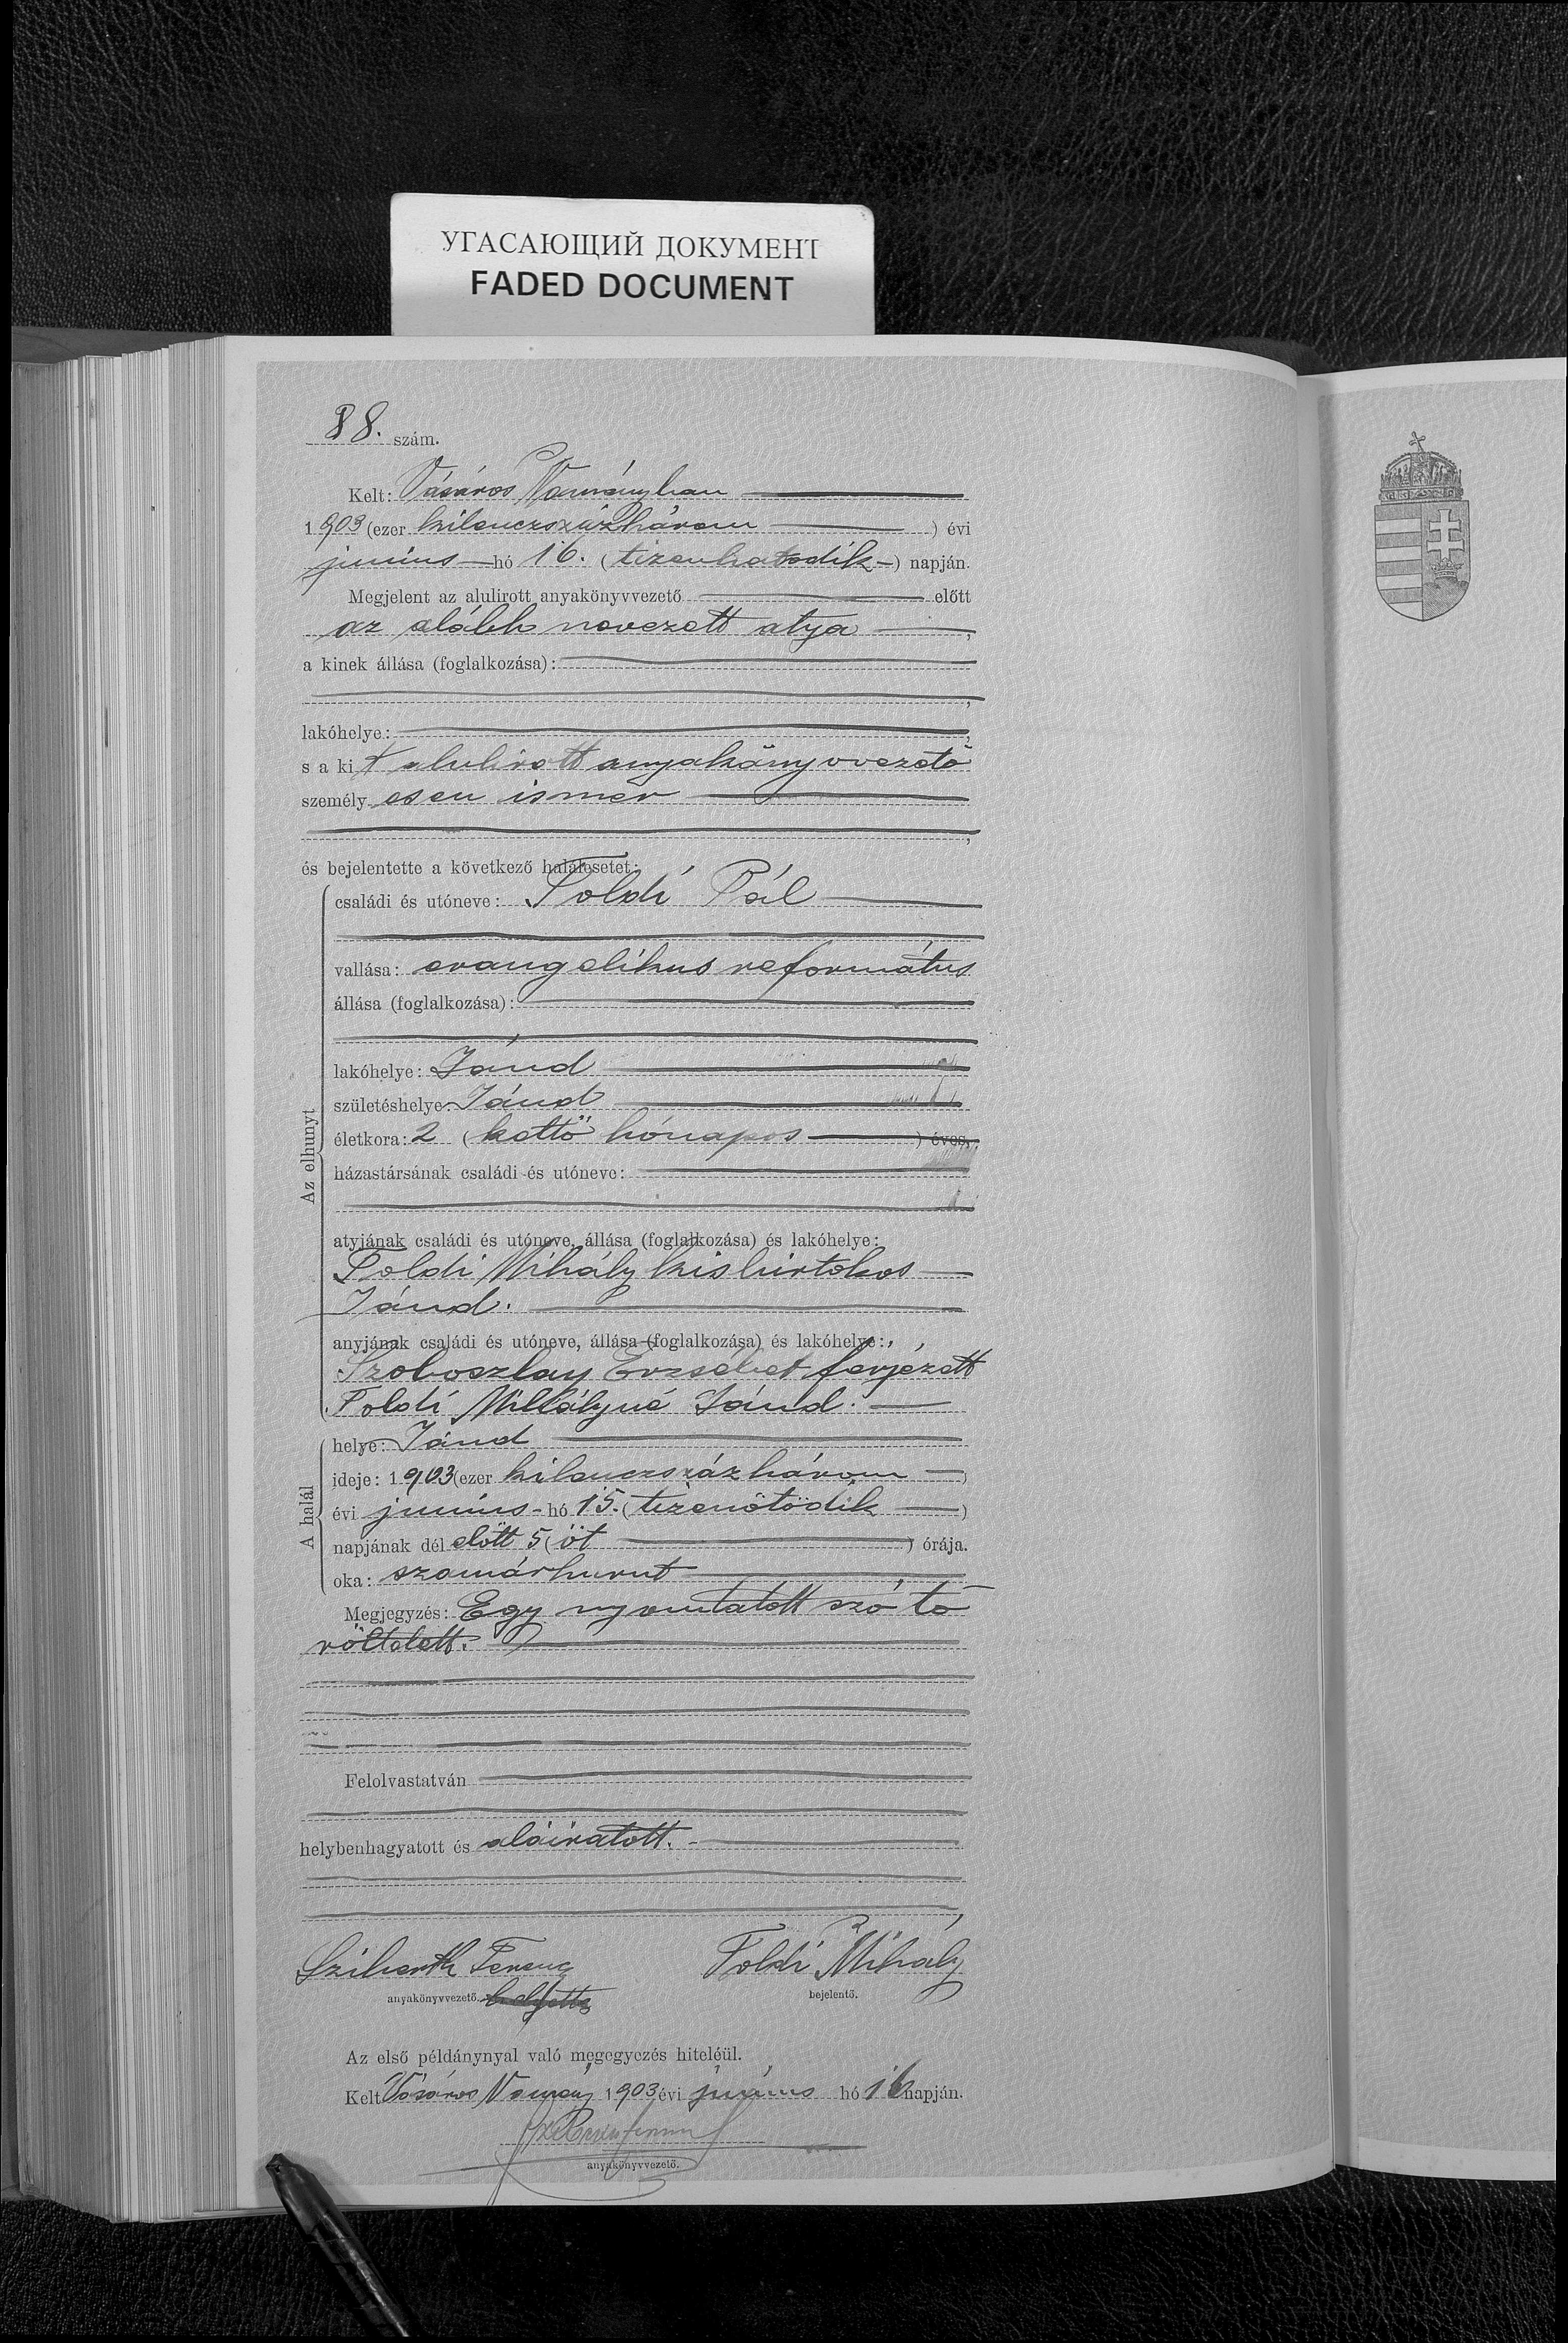 УГАСАЮЩИЙ ДОКУМЕНТ
FADED DOCUMENT
88. szám.
Kelt: Vásáros Naményban
1903 (ezer kilenczszázhárom ) évi
junius hó 16. (tizenhatodik) napján.
Megjelent az alulirott anyakönyvvezető előtt
az alább nevezett atya ,
a kinek állása (foglalkozása):
,
lakóhelye: ,
s a kit alulirott anyakönyvvezető
személyesen ismer
,
és bejelentette a következő halálesetet:
Az elhunyt
családi és utóneve: Foldi Pál
vallása: evangelikus református
állása (foglalkozása):
lakóhelye: Jánd
születéshelye: Jánd
életkora: 2 (kettö hónapos ) éves,
házastársának családi és utóneve:
atyjának családi és utóneve, állása (foglalkozása) és lakóhelye:
Foldi Mihály kisbirtokos
Jánd.
anyjának családi és utóneve, állása (foglalkozása) és lakóhelye:
Szoboszlay Erzsébet férjezett
Foldi Mihályné Jánd.
A halál
helye: Jánd
ideje: 1903 (ezer kilenczszázhárom )
évi junius hó 15. (tizenötödik )
napjának dél előtt 5 (öt ) órája.
oka: szamárhurut
Megjegyzés: Egy nyomtatott szó tö
röltetett.
Felolvastatván
helybenhagyatott és aláiratott.
Ferenc Foldi Mihály
anyakönyvvezető. helyettes bejelentő.
Az első példánynyal való megegyezés hiteléül.
Kelt Vásáros Namény 1903 évi junius hó 16 napján.
anyakönyvvezető.